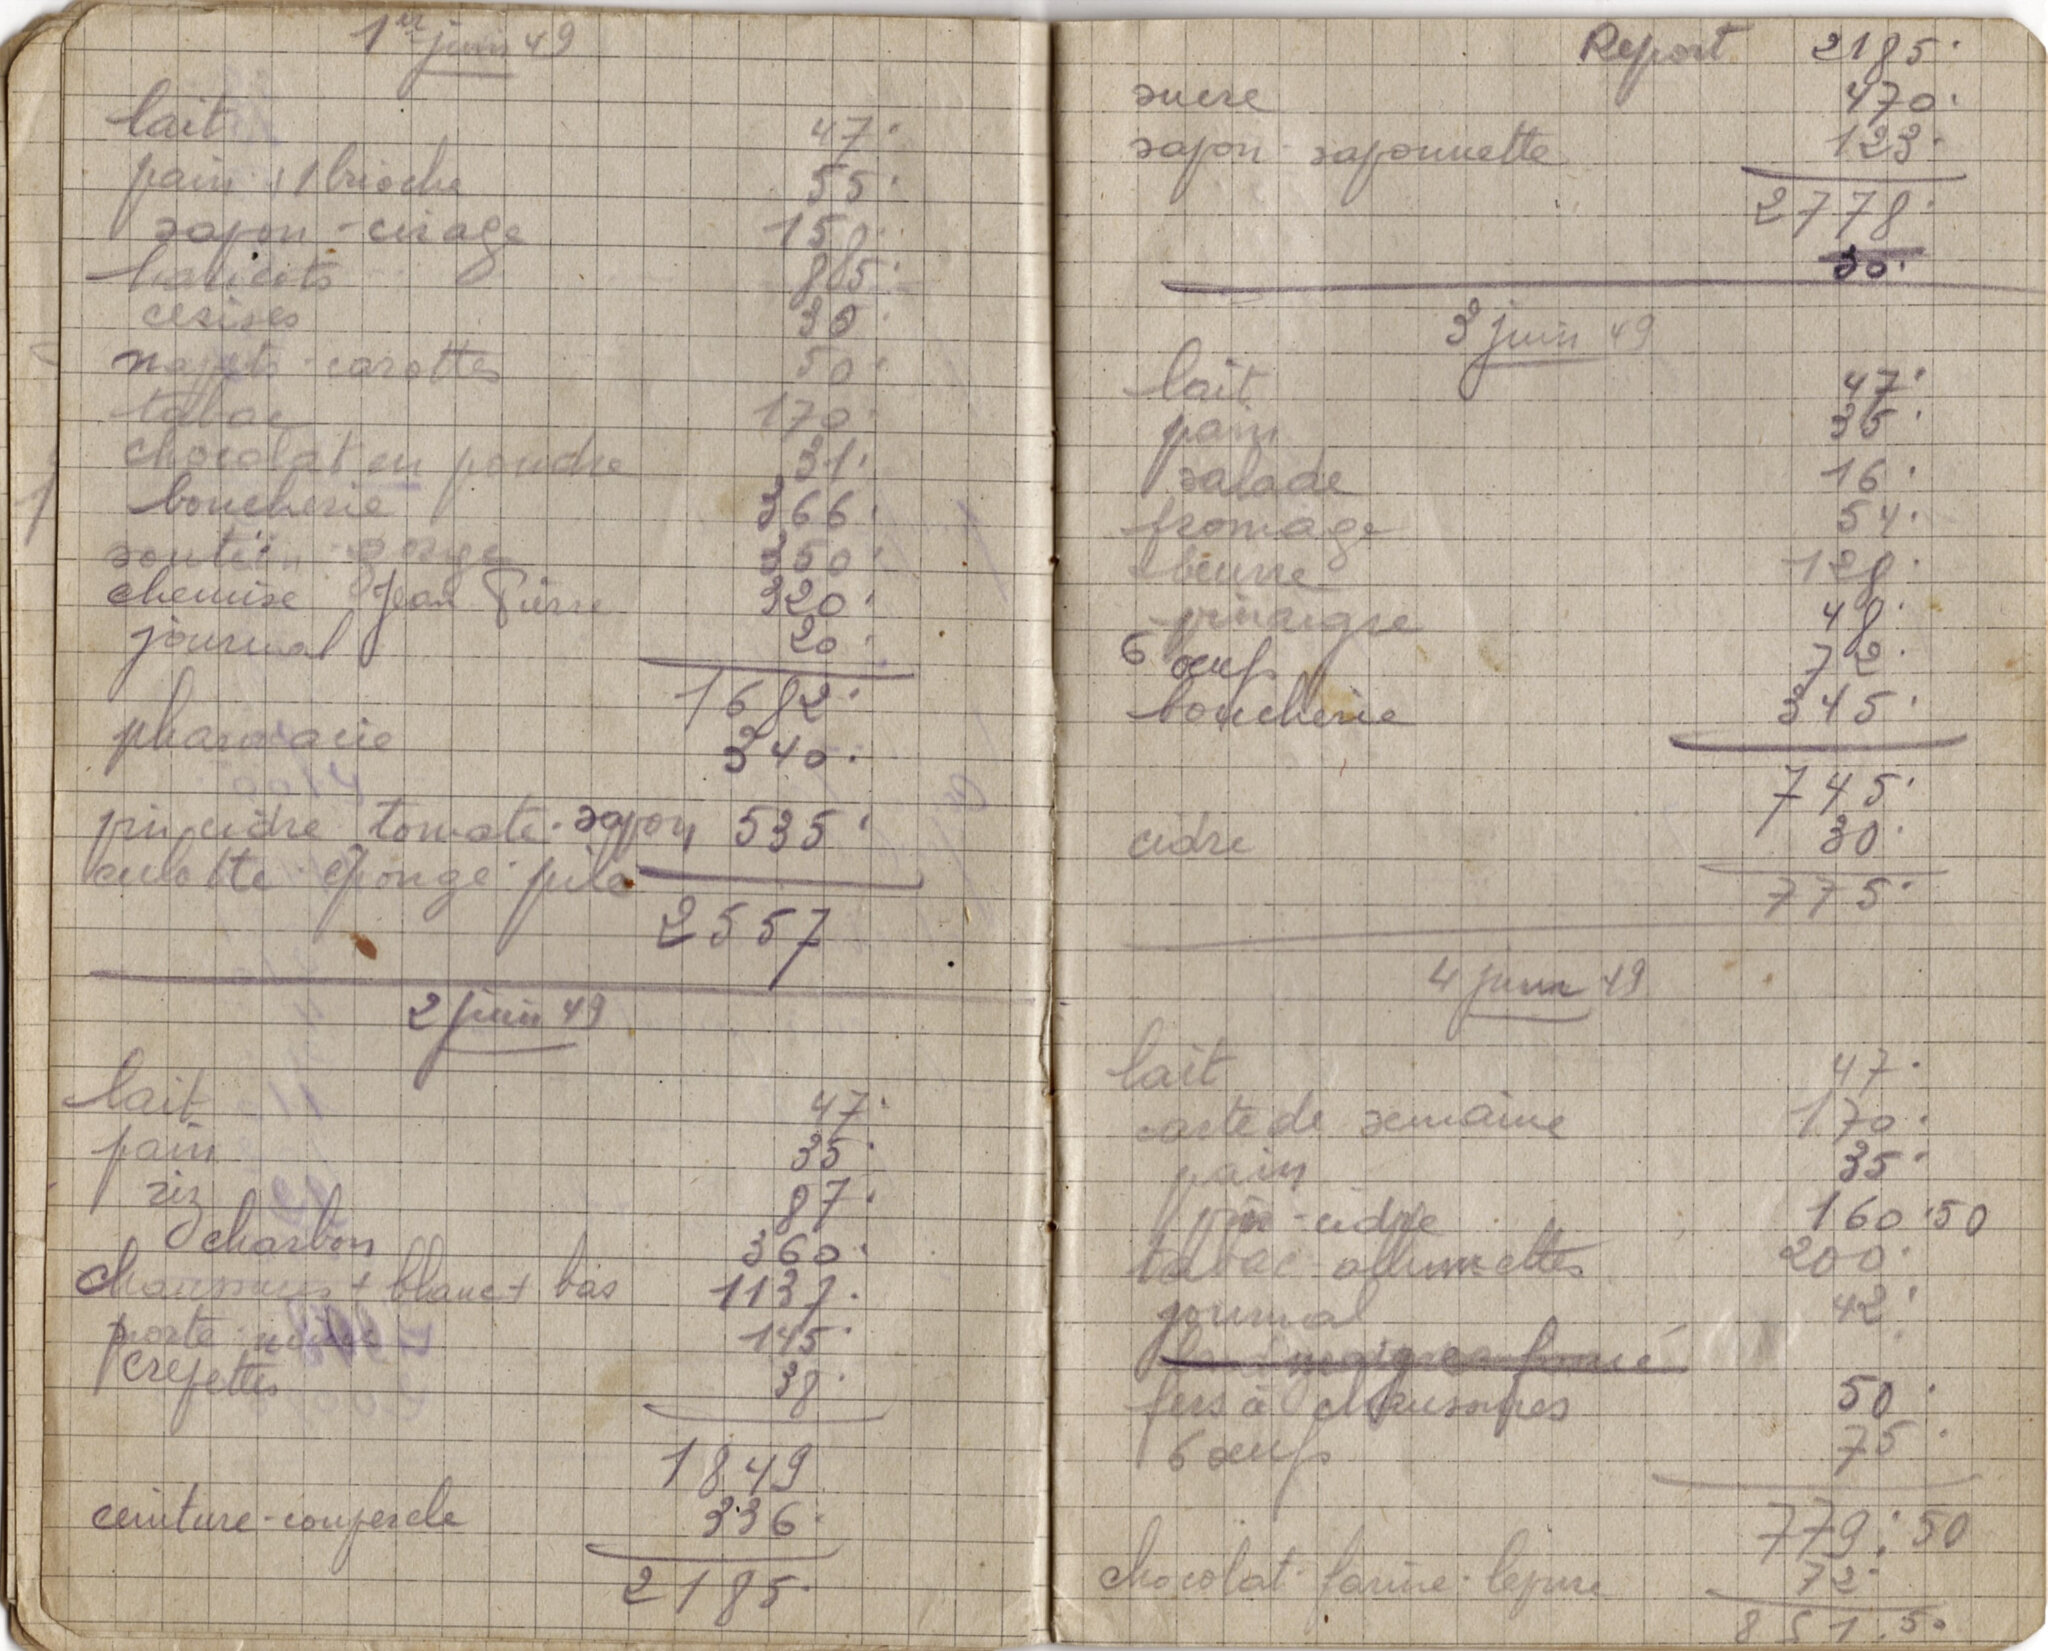 1er juin 49
lait 47.
pain + 1 brioche 55.
savon - cirage 150.
haricots 85.
cerises 30.
navets - carottes 50.
tabac 170.
chocolat en poudre 31.
boucherie 366.
soutien - gorge 350.
chemise Jean Pierre 320.
journal 20.
1682.
pharmacie 340.
cidre tomate - savon 535.
culotte éponge
2557
2 juin 49
lait 47.
pain 35.
riz 87.
charbon 360.
+ blanc + bas 1137.
porte 145.
crepettes 38.
1849
ceinture - couvercle 336.
2185.
Report 2185.
sucre 470.
savon - savonnette 123.
2778.
30.
3 juin 49
lait 47.
pain 35.
salade 16.
fromage 54.
beurre 128.
vinaigre 48.
6 oeufs 72.
boucherie 345.
745.
cidre 30.
775.
4 juin 49
lait 47.
carte de semaine 170.
pain 35.
vin - cidre 160.50
tabac allumettes 200.
journal 42.
fers à chaussures 50.
6 oeufs 75.
779.50
chocolat - farine - levure 72.
851.50